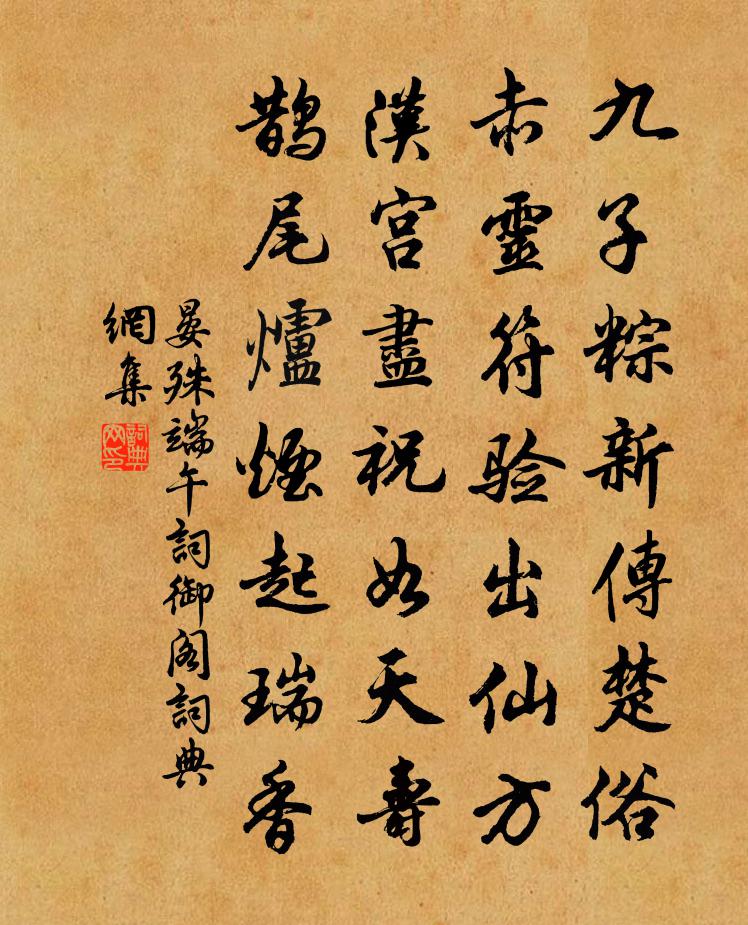 九子粽新傳楚俗
赤靈符验出仙方
漢宮盡祝如天壽
鵲尾爐煙起瑞香
晏殊端午詞御阁詞典
網集
詞典
网印